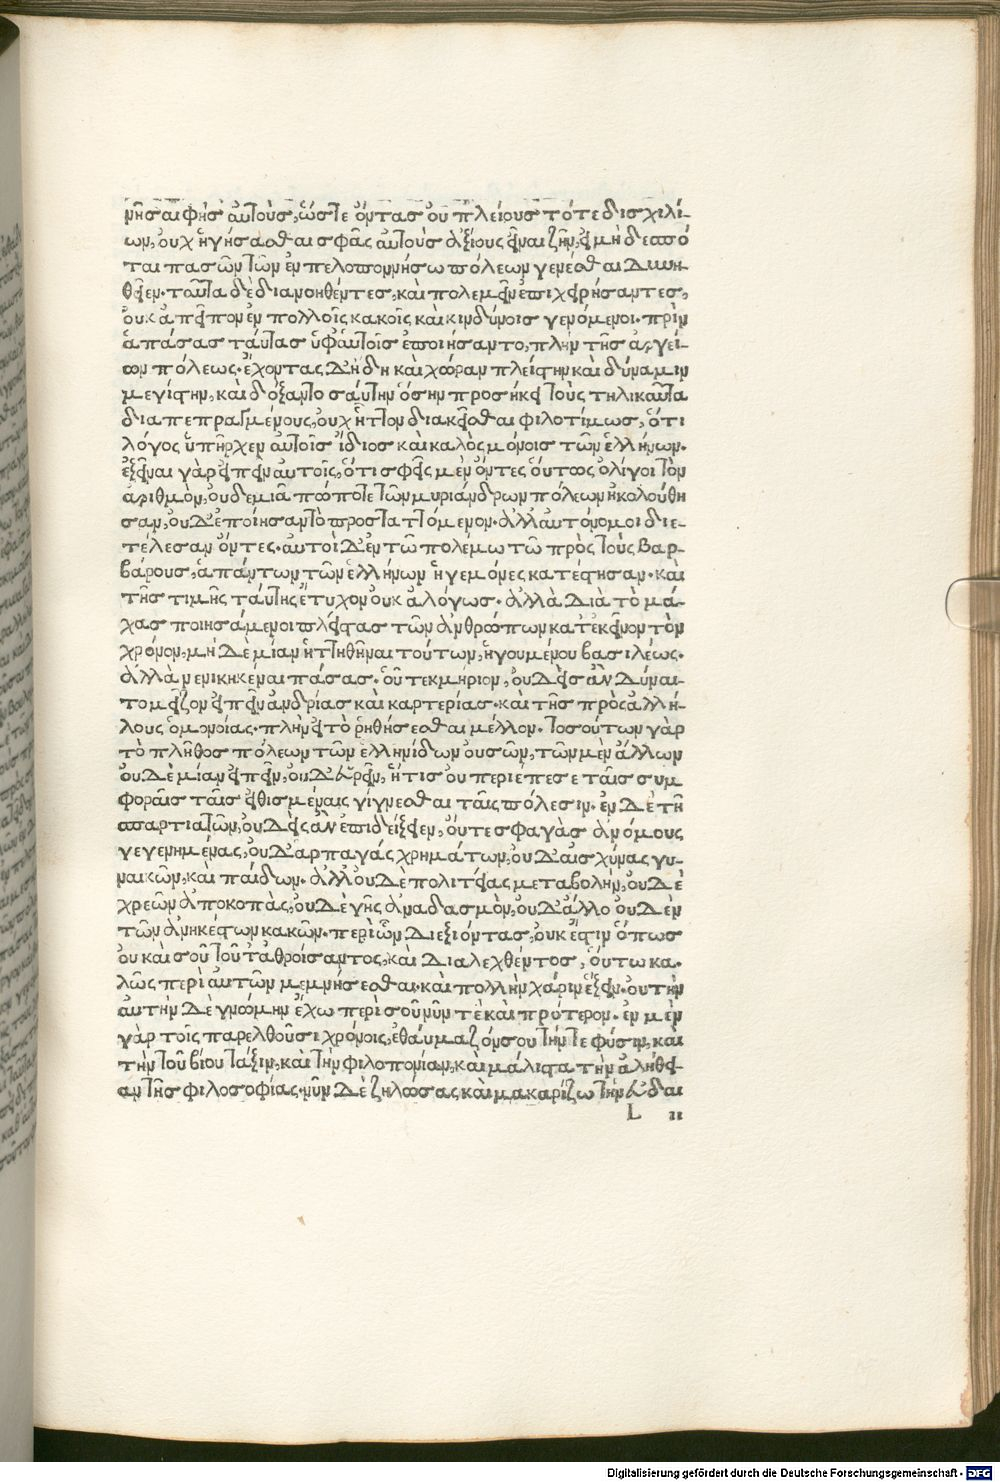 μῆσαι φὴς αὐτοὺς, ὥστε ὄντας οὐ πλείους τότε δισχιλί-
ων, οὐχ ἡγήσασθαι σφᾶς αὐτοὺς ἀξίους εἶναι ζῆν, εἰ μὴ δεσπό
ται πασῶν τῶν ἐν πελοποννήσω πόλεων γενέσθαι δυνη-
θεῖεν. ταῦτα δὲ διανοηθέντες, καὶ πολεμεῖν ἐπιχειρήσαντες,
οὐκ ἀπεῖπον ἐν πολλοῖς κακοῖς καὶ κινδύνοις γενόμενοι. πρὶν
ἁπάσας ταύτας ὑφ' αὑτοῖς ἐποιήσαντο, πλὴν τῆς ἀργεί-
ων πόλεως. ἔχοντας δ' ἤδη καὶ χώραν πλείστην καὶ δύναμιν
μεγίστην, καὶ δόξαν τοσαύτην ὅσην προσήκει τοὺς τηλικαῦτα
διαπεπραγμένους, οὐχ ἧττον διακεῖσθαι φιλοτίμως, ὅτι
λόγος ὑπῆρχεν αὐτοῖς ἴδιος καὶ καλὸς μόνοις τῶν ἑλλήνων.
ἐξεῖναι γὰρ εἰπεῖν αὐτοῖς, ὅτι σφεῖς μὲν ὄντες οὕτως ὀλίγοι τὸν
ἀριθμὸν, οὐδεμιᾶ πώποτε τῶν μυριάνδρων πόλεων ἠκολούθη
σαν, οὐδ' ἐποίησαν τὸ προσταττόμενον. ἀλλ' αὐτόνομοι διε-
τέλεσαν ὄντες. αὐτοὶ δ' ἐν τῶ πολέμω τῶ πρὸς τοὺς βαρ-
βάρους, ἁπάντων τῶν ἑλλήνων ἡγεμόνες κατέστησαν. καὶ
τῆς τιμῆς ταύτης ἔτυχον οὐκ ἀλόγως. ἀλλὰ διὰ τὸ μά-
χας ποιησάμενοι πλείστας τῶν ἀνθρώπων κατ' ἐκεῖνον τὸν
χρόνον, μηδεμίαν ἡττηθῆναι τούτων, ἡγουμένου βασιλέως.
ἀλλὰ νενικηκέναι πάσας. οὗ τεκμήριον, οὐδεὶς ἂν δύναι-
το μεῖζον εἰπεῖν ἀνδρίας καὶ καρτερίας. καὶ τῆς πρὸς ἀλλή-
λους ὁμονοίας. πλὴν εἰ τὸ ῥηθήσεσθαι μέλλον. τοσούτων γὰρ
τὸ πλῆθος πόλεων τῶν ἑλληνίδων οὐσῶν, τῶν μὲν ἄλλων
οὐδεμίαν εἰπεῖν, οὐδ' εὑρεῖν, ἥτις οὐ περιέπεσε ταῖς συμ
φοραῖς ταῖς εἰθισμέναις γίγνεσθαι ταῖς πόλεσιν. ἐν δὲ τῆ
σπαρτιατῶν, οὐδεὶς ἂν ἐπιδείξειεν, οὔτε σφαγὰς ἀνόμους
γεγενημένας, οὐδ' ἁρπαγάς χρημάτων, οὐδ' αἰσχύνας γυ-
ναικῶν, καὶ παίδων. ἀλλ' οὐδὲ πολιτείας μεταβολὴν, οὐδὲ
χρεῶν ἀποκοπὰς, οὐδὲ γῆς ἀναδασμὸν, οὐδ' ἄλλο οὐδὲν
τῶν ἀνηκέστων κακῶν. περὶ ὧν διεξιόντας, οὐκ ἔστιν ὅπως
οὐ καὶ σοῦ τοῦ τ' ἀθροίσαντος, καὶ διαλεχθέντος, οὕτω κα.
λῶς περὶ αὐτῶν μεμνήσεσθαι. καὶ πολλὴν χάριν ἕξειν. οὐ τὴν
αὐτὴν δὲ γνώμην ἔχω περὶ σοῦ νῦν τὲ καὶ πρότερον. ἐν μὲν
γὰρ τοῖς παρελθοῦσι χρόνοις, ἐθαύμαζόν σου τήν τε φύσιν, καὶ
τὴν τοῦ βίου τάξιν, καὶ τὴν φιλοπονίαν, καὶ μάλιστα τὴν ἀλήθει
αν τῆς φιλοσοφίας. νῦν δὲ ζηλῶ σε καὶ μακαρίζω τῆς εὐδαι
L ιι